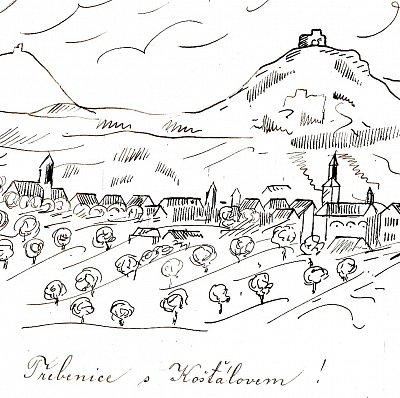 Třebenice s Košťálovem !